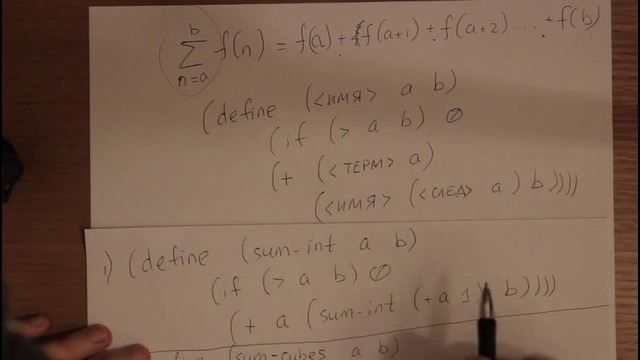 b
∑ f(n) = f(a) + f(a+1) + f(a+2) ... + f(b)
n=a
(define (<имя> a b)
(if (> a b) 0
(+ (<терм> a)
(<имя> (<след> a) b))))
1) (define (sum-int a b)
(if (> a b) 0
(+ a (sum-int (+a 1) b))))
(sum-cubes a b)